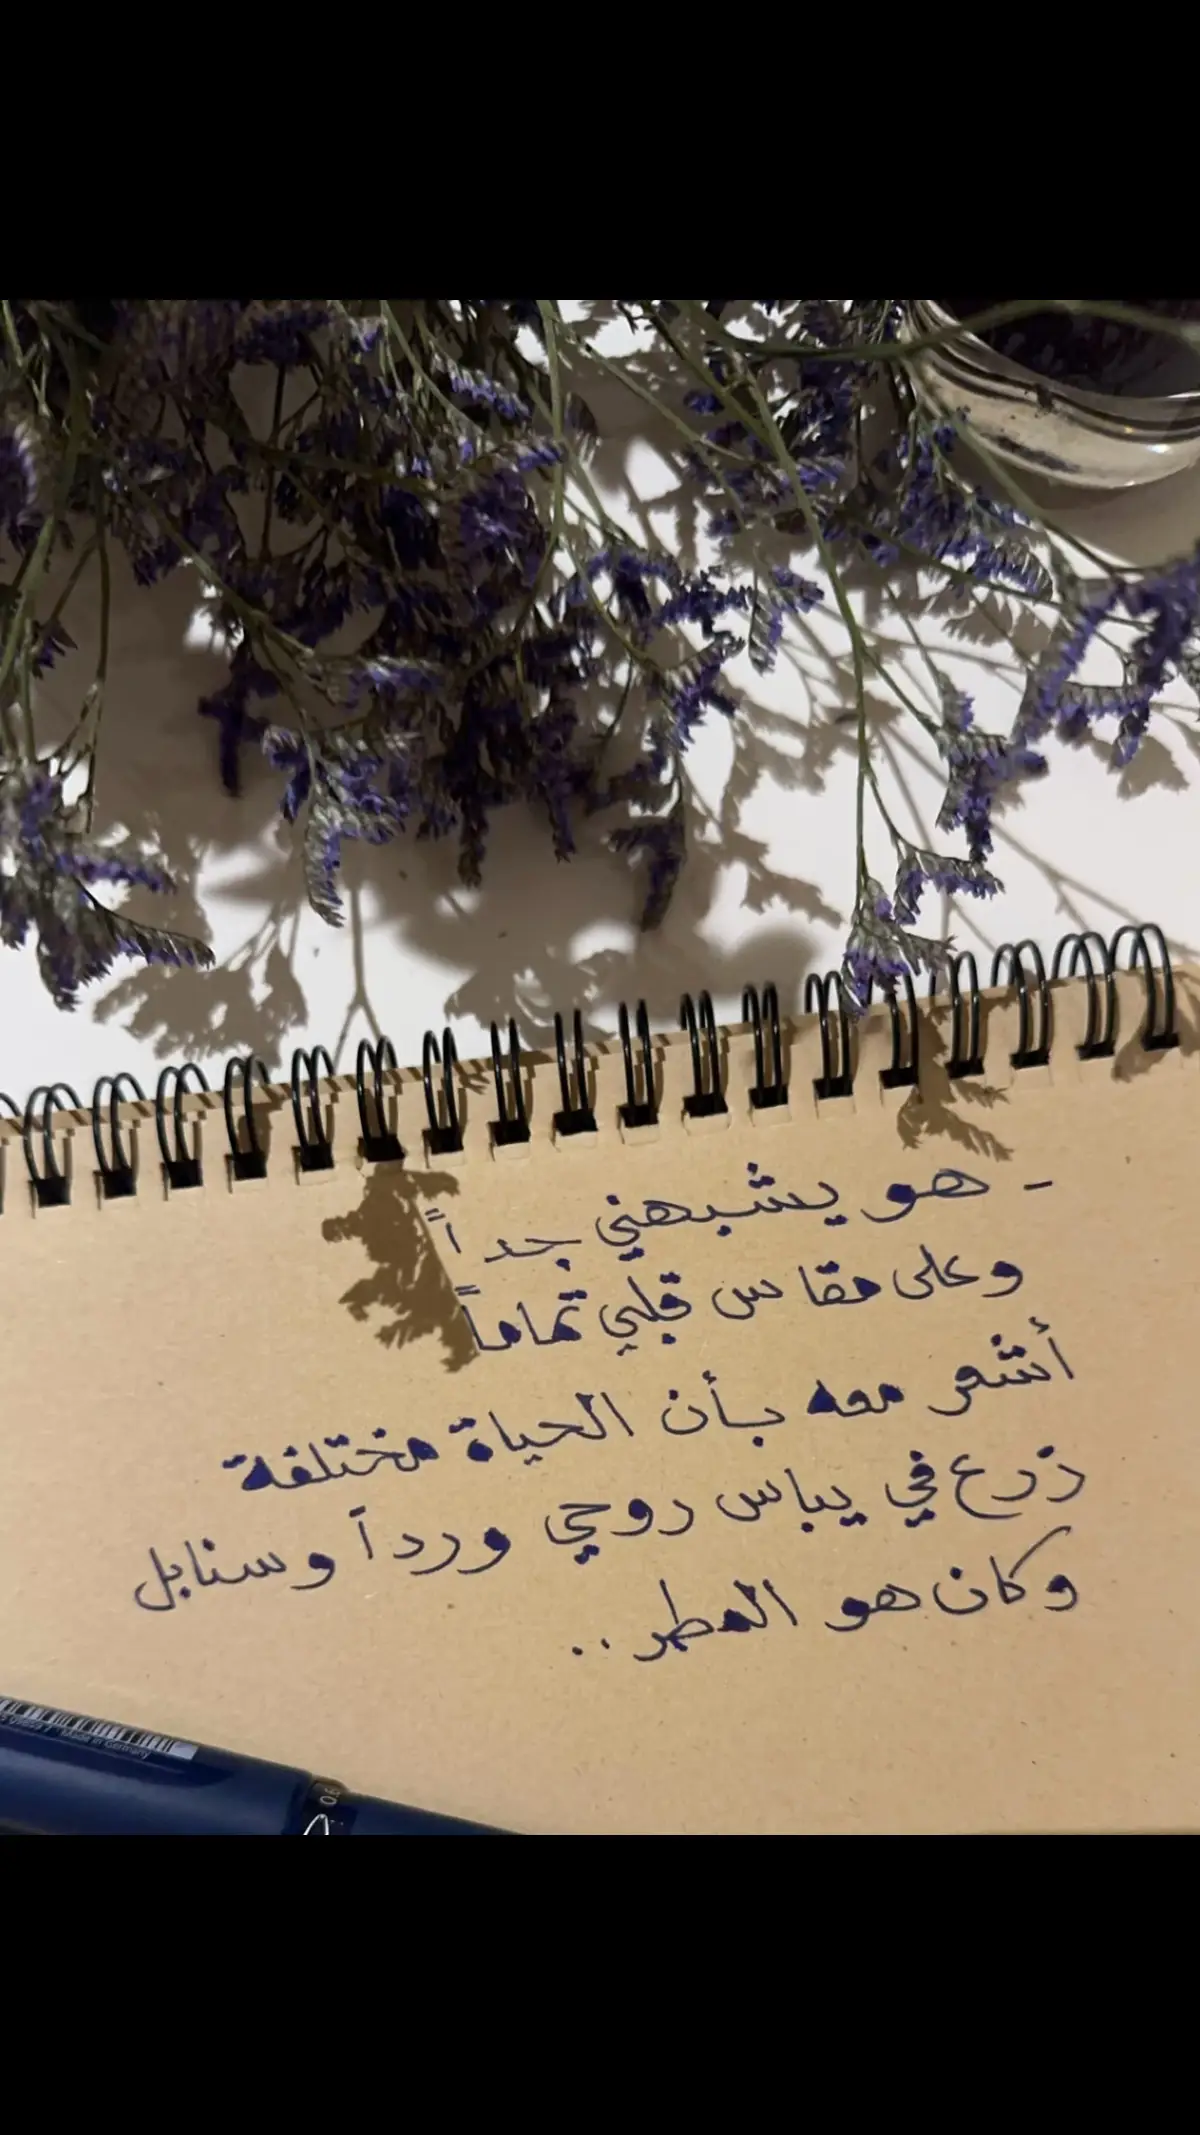 - هو يشبهني جداً
وعلى مقاس قلبي تماماً
أشعر معه بأن الحياة مختلفة
زرع في يباس روحي ورداً وسنابل
وكان هو المطر..
Made in Germany
0.6